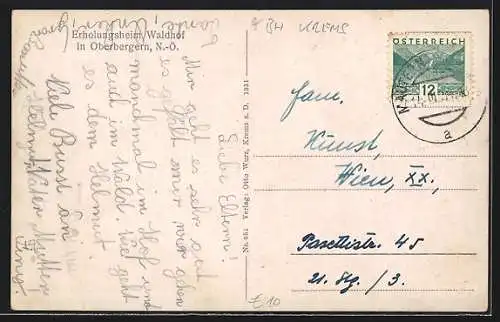 Erholungsheim Waldhof
in Oberbergern, N.-Ö.
BH KREMS
ÖSTERREICH
12
Liebe Eltern!
Mir geht es sehr gut
es gefällt mir wir gehen
manchmal im Hof und
auch im Wald. wie geht
es dem Helmut
Viele Bussi an
Vater Mutter
Nr. 251 Verlag: Otto Wurz, Krems a. D. 1931
Fam.
Kunst,
Wien, XX.,
Pasettistr. 45
21. Stg. / 3.
a
£10